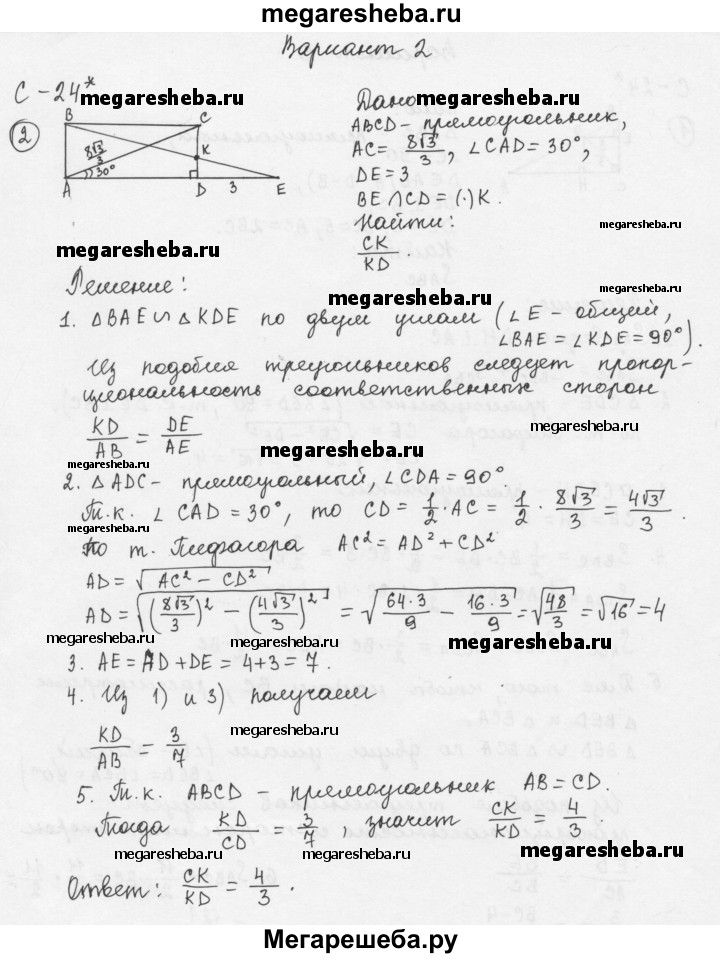 megaresheba.ru
Вариант 2
С-24*
megaresheba.ru
2
B C
8√3/3
K
30°
A D 3 E
Дано:
megaresheba.ru
ABCD - прямоугольник,
AC = 8√3/3, ∠CAD = 30°,
DE = 3
BE ∩ CD = (·) K.
Найти:
megaresheba.ru
CK/KD.
megaresheba.ru
megaresheba.ru
Решение:
1. △BAE ∽ △KDE по двум углам (∠E - общий,
∠BAE = ∠KDE = 90°).
Из подобия треугольников следует пропор-
циональность соответственных сторон
megaresheba.ru
KD/AB = DE/AE
megaresheba.ru
2. △ADC - прямоугольный, ∠CDA = 90°
megaresheba.ru
Т.к. ∠CAD = 30°, то CD = 1/2 · AC = 1/2 · 8√3/3 = 4√3/3.
По т. Пифагора AC² = AD² + CD²
megaresheba.ru
AD = √(AC² - CD²)
AD = √((8√3/3)² - (4√3/3)²) = √(64·3/9 - 16·3/9) = √(48/3) = √16 = 4
megaresheba.ru
megaresheba.ru
3. AE = AD + DE = 4 + 3 = 7.
4. Из 1) и 3) получаем
megaresheba.ru
KD/AB = 3/7
megaresheba.ru
5. Т.к. ABCD - прямоугольник AB = CD.
Тогда KD/CD = 3/7, значит CK/KD = 4/3.
megaresheba.ru
megaresheba.ru
Ответ: CK/KD = 4/3.
Мегарешеба.ру